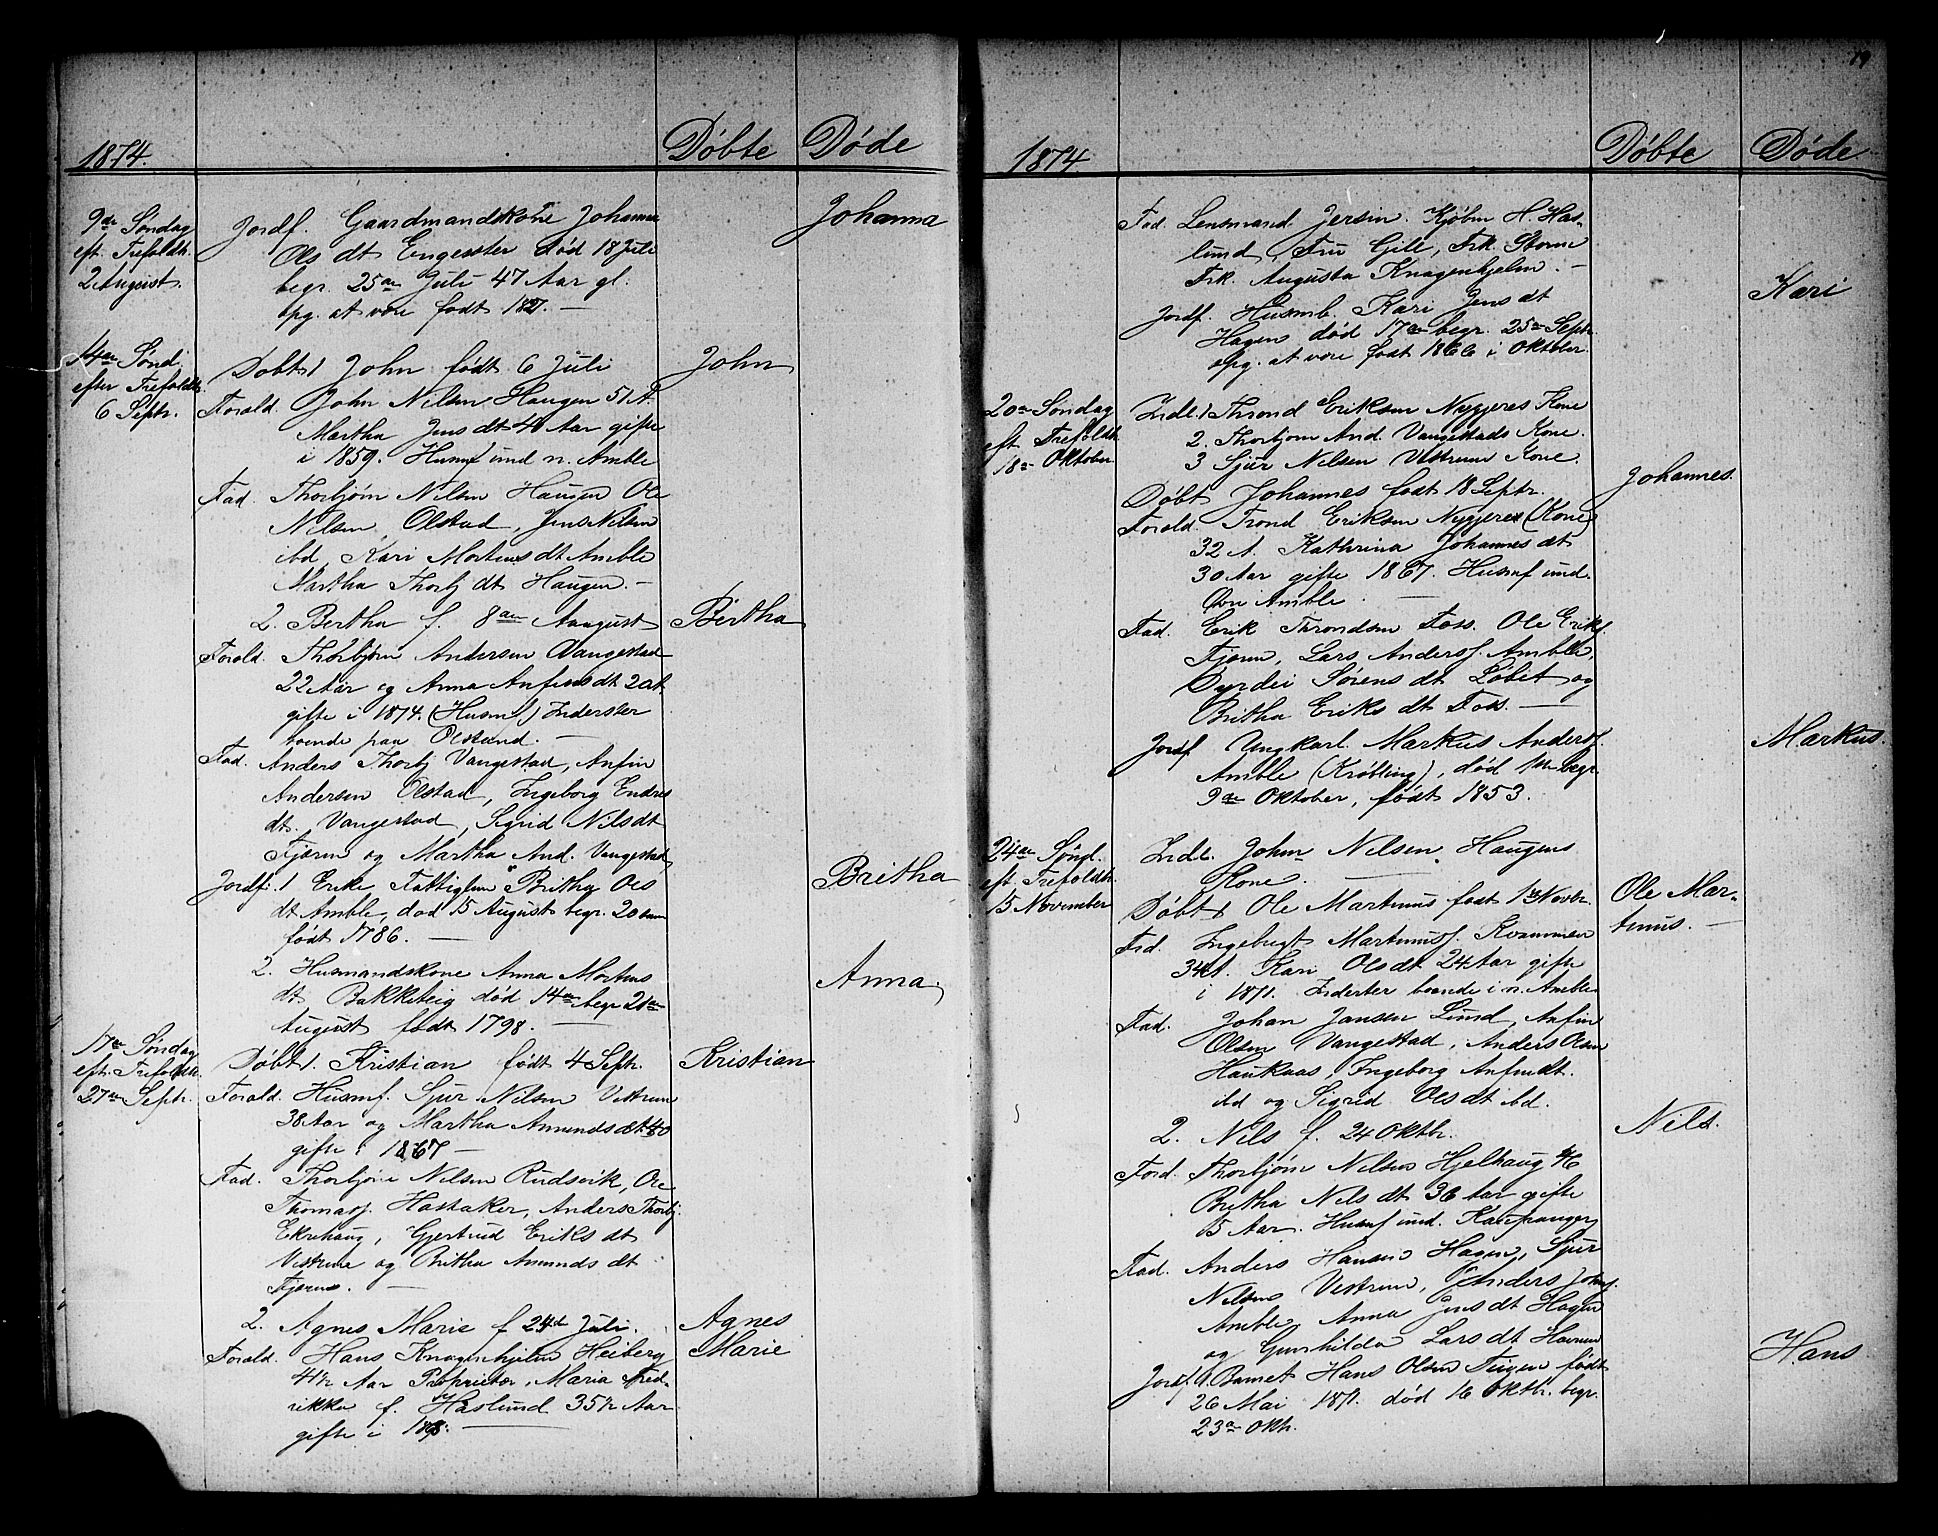 1874. Døbte Døde
9de Søndag
eft. Trefoldh.
2 August.
Jordf. Gaardmandskone Johanna
Ols dt Engesæter død 18 Juli
begr. 25de Juli 47 Aar gl.
opg. at være født 1827. —
Johanna
14de Sønd.
efter Trefoldh.
6 Septr.
Døbt 1 John født 6 Juli
John
Forald. John Nilsen Haugen 51 A.
Martha Jens dt 40 Aar gifte
i 1859. Husmf und n. Amble
Fad. Thorbjørn Nilsen Haugen Ole
Nilsen Olstad, Jens Nilsen
ibd, Kari Mortens dt Amble
Martha Thorbj dt Haugen. —
2. Bertha f. 8de August
Bertha
Forald. Thorbjørn Andersen Vangestad
22 Aar og Anna Anfins dt 20 A
gifte i 1874. (Husmf) Inderster
boende paa Olstad. —
Fad. Anders Thorbj Vangestad, Anfin
Andersen Olstad, Ingeborg Endres
dt. Vangestad, Sigrid Nils dt
Fjæren og Martha And. Vangestad
Jordf. 1 Enke, Fattiglem Britha Ols
dt Amble, død 15 August begr. 20
født 1786. —
Britha
2. Husmandskone Anna Mortens
dt Bakketeig død 14de begr 20de
August født 1798. —
Anna
17de Søndag
eft. Trefoldh.
27de Septr.
Døbt 1. Kristian født 4 Septr.
Kristian
Forald. Husmf. Sjur Nilsen Vestrum
38 Aar og Martha Amunds dt 40
gifte i 1867 —
Fad. Thorbjørn Nilsen Rudsvik, Ole
Thomasf. Hastaker, Anders Thorbj.
Ekrehaug, Gjertrud Eriks dt
Vestrum og Britha Amunds dt
Fjæren. —
2. Agnes Marie f 24de Juli.
Agnes
Marie
Forald. Hans Knagenhjelm Heiberg
41½ Aar Proprietær, Maria Fred-
rikke f. Haslund 35½ Aar
gifte i —
19
1874 Døbte Døde
Fad. Lensmand Jersin. Kjøbm H. Has-
lund, Fru Gill, Frk. Storm
Frk. Augusta Knagenhjelm. —
Jordf. Husmb. Kari Jens dt
Hagen død 17de begr. 25de Septr.
opg. at være født 1866 i Oktober.
Kari
20de Søndag
eft. Trefoldh.
18de Oktober
Indl. 1 Thrond Eriksen Nygjeres Kone
2. Thorbjørn And. Vangestads Kone.
3 Sjur Nilsen Vestrum Kone.
Døbt Johannes født 18 Septr.
Johannes.
Forald. Trond Eriksen Nygjeres (Kone)
32 A. Kathrina Johannes dt
30 Aar gifte 1867. Husmf und.
Øvre Amble. —
Fad. Erik Throndsen Foss. Ole Erikf.
Fjæren, Lars Andersf. Amble,
Dyrdei Sørens dt Løbet og
Britha Eriks dt Foss. —
Jordf Ungkarl. Markus Andersf.
Amble (Krøbling), død 1ste begr.
9de Oktober, født 1853.
Markus.
24de Sønd.
eft. Trefoldh.
15 November
Indl. John Nilsen Haugens
Kone. —
Døbt 1 Ole Martinus født 1ste Novbr.
Ole Mar-
tinus. —
Fod. Ingebrigt Martinusf. Kvammen
34 A. Kari Ols dt 24 Aar gifte
i 1871. Inderster boende i n. Amble
Fad. Johan Jansen Lund, Anfin
Olsen Vangestad, Anders Olsen
Haukaas, Ingeborg Anfin dt.
ibd og Sigrid Ols dt ibd.
2. Nils f. 24 Oktbr.
Nils.
Ford. Thorbjørn Nilsen Hjelhaug 46
Britha Nils dt 36 Aar gifte
15 Aar. Husmf und. Kaupanger
Fad. Anders Hansen Hagen, Sjur
Nilsen Vestrum, Anders Johnf.
Amble, Anna Jens dt Hagen
og Gunhilda Lars dt Havnen
Jordf. 1. Barnet Hans Olsen Tugen født
26 Mai 1871. død 16 Oktbr. begr.
23de Oktr.
Hans